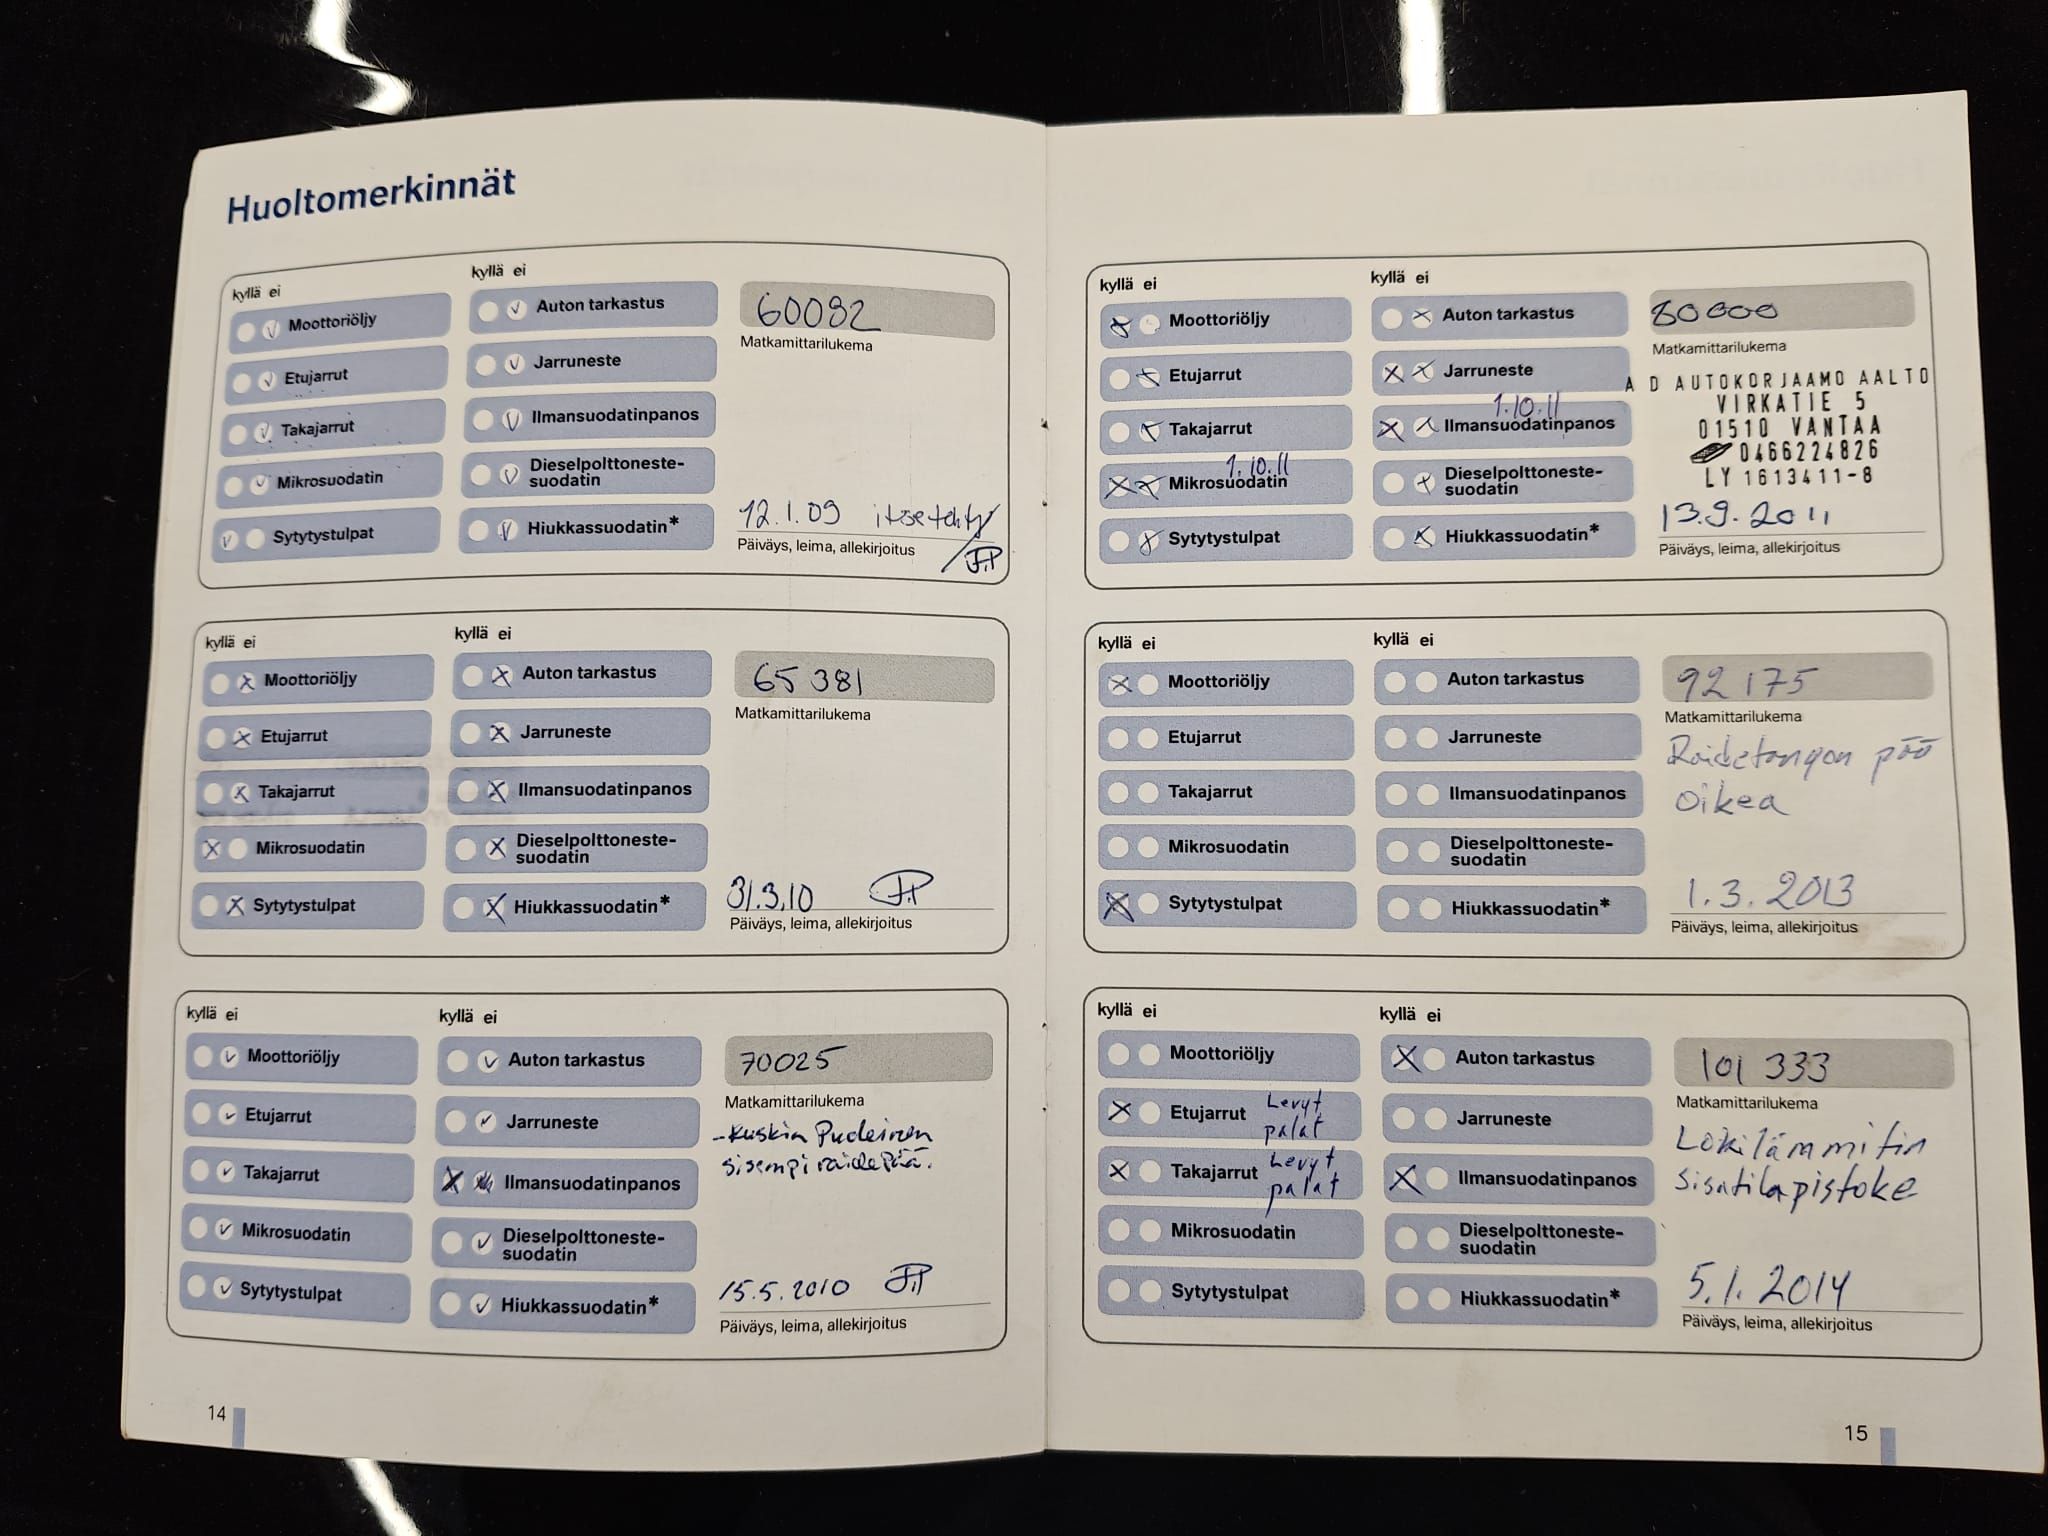 Huoltomerkinnät
kyllä ei
kyllä ei
Moottoriöljy
Auton tarkastus
60082
Matkamittarilukema
Etujarrut
Jarruneste
Takajarrut
Ilmansuodatinpanos
Mikrosuodatin
Dieselpolttoneste-
suodatin
Sytytystulpat
Hiukkassuodatin*
12.1.09 itse tehty
Päiväys, leima, allekirjoitus
kyllä ei
kyllä ei
Moottoriöljy
Auton tarkastus
65 381
Matkamittarilukema
Etujarrut
Jarruneste
Takajarrut
Ilmansuodatinpanos
Mikrosuodatin
Dieselpolttoneste-
suodatin
Sytytystulpat
Hiukkassuodatin*
31.3.10
Päiväys, leima, allekirjoitus
kyllä ei
kyllä ei
Moottoriöljy
Auton tarkastus
70025
Matkamittarilukema
Etujarrut
Jarruneste
-Kuskin Puoleinen
sisempi raidepää.
Takajarrut
Ilmansuodatinpanos
Mikrosuodatin
Dieselpolttoneste-
suodatin
Sytytystulpat
Hiukkassuodatin*
15.5.2010
Päiväys, leima, allekirjoitus
14
kyllä ei
kyllä ei
Moottoriöljy
Auton tarkastus
80000
Matkamittarilukema
Etujarrut
Jarruneste
A D AUTOKORJAAMO AALTO
VIRKATIE 5
01510 VANTAA
0466224826
LY 1613411-8
1.10.11
Takajarrut
Ilmansuodatinpanos
1.10.11
Mikrosuodatin
Dieselpolttoneste-
suodatin
Sytytystulpat
Hiukkassuodatin*
13.9.2011
Päiväys, leima, allekirjoitus
kyllä ei
kyllä ei
Moottoriöljy
Auton tarkastus
92 175
Matkamittarilukema
Etujarrut
Jarruneste
Raidetangon pää
oikea
Takajarrut
Ilmansuodatinpanos
Mikrosuodatin
Dieselpolttoneste-
suodatin
Sytytystulpat
Hiukkassuodatin*
1.3.2013
Päiväys, leima, allekirjoitus
kyllä ei
kyllä ei
Moottoriöljy
Auton tarkastus
101 333
Matkamittarilukema
Etujarrut Levyt
palat
Jarruneste
Lohilämmitin
sisätilapistoke
Takajarrut Levyt
palat
Ilmansuodatinpanos
Mikrosuodatin
Dieselpolttoneste-
suodatin
Sytytystulpat
Hiukkassuodatin*
5.1.2014
Päiväys, leima, allekirjoitus
15